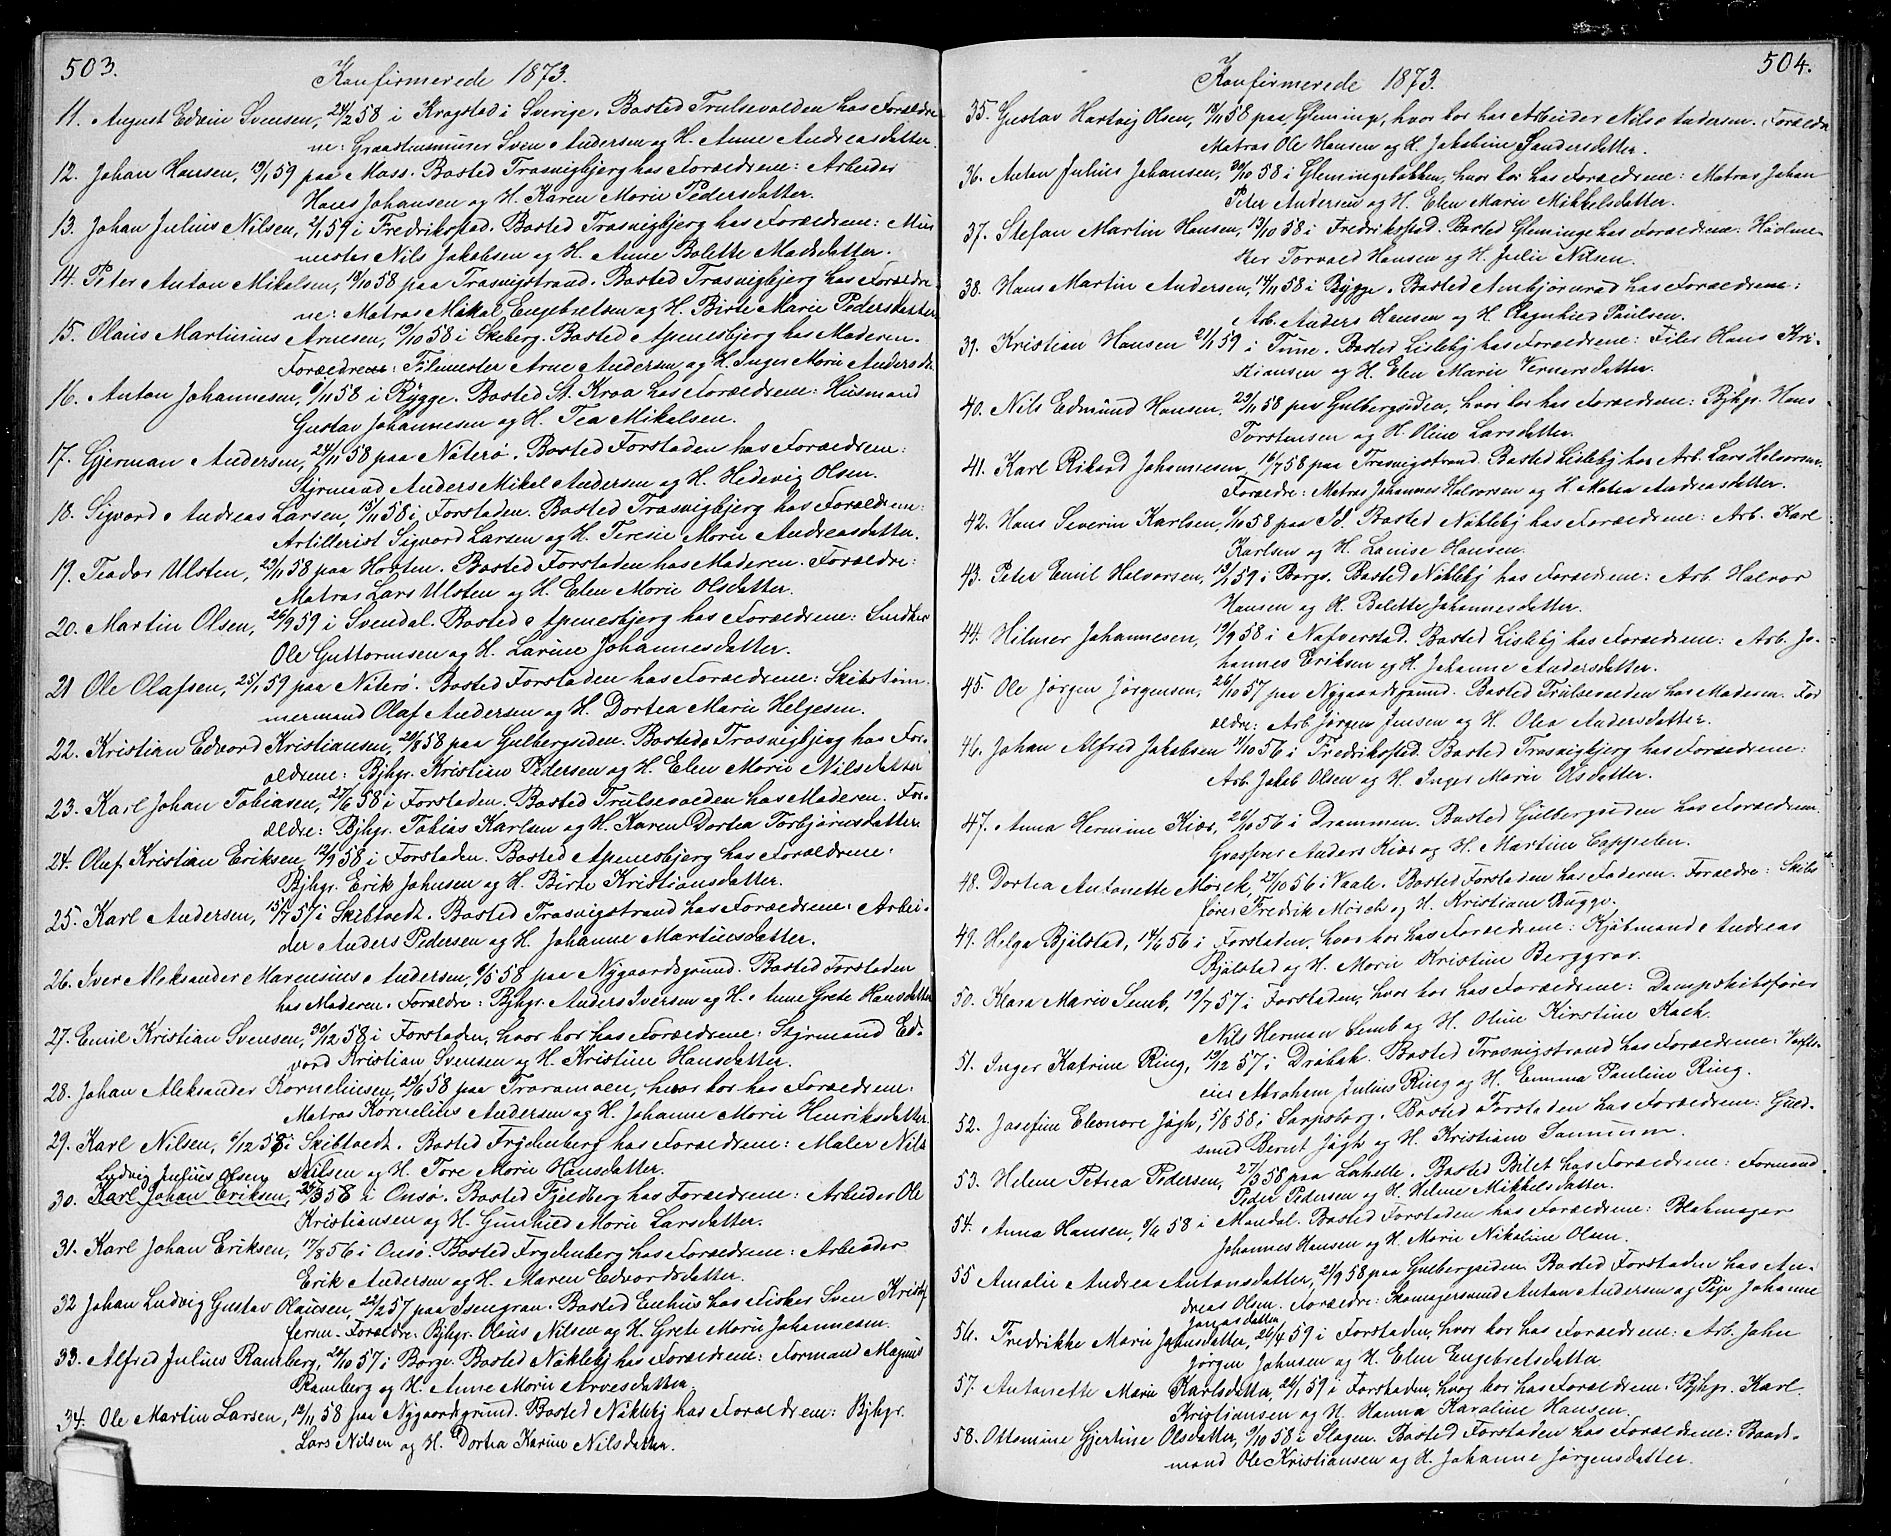 503.
Konfirmerede 1873.
11. August Edvin Svensen, 24/2 58 i Krogstad i Sverige. Bosted Trulsevolden hos Forældre-
ne: Graastensmurer Sven Andersen og H. Anne Andreasdatter.
12. Johan Hansen, 19/1 59 paa Moss. Bosted Trosvigbjerg hos Forældrene: Arbeider
Hans Johansen og H. Karen Marie Pedersdatter.
13. Johan Julius Nilsen, 2/1 59 i Fredrikstad. Bosted Trosvigbjerg hos Forældrene: Mur-
mester Nils Jakobsen og H. Anne Bolette Madsdatter.
14. Peter Anton Mikalsen, 18/10 58 paa Trosvigstrand. Bosted Trosvigbjerg hos Forældre-
ne: Matros Mikal Engebretsen og H. Birte Marie Pedersdatter
15. Olaus Martinius Arnesen, /10 58 i Skeberg. Bosted Apenesbjerg hos Moderen.
Forældrene: Filemester Arne Andersen og H. Inger Marie Andersdt.
16. Anton Johannesen, 6/11 58 i Rygge. Bosted St. Kraa hos Forældrene: Husmand
Gustav Johannesen og H. Tea Mikalsen.
17. Gjerman Andersen, 24/11 58 paa Nøterø. Bosted Forstaden hos Forældrene:
Styrmand Anders Mikal Andersen og H. Hedevig Olsen.
18. Sigvard Andreas Larsen, 15/11 58 i Forstaden. Bosted Trosvigbjerg hos Forældrene:
Artillerist Sigvard Larsen og H. Teresie Marie Andreasdatter.
19. Teodor Ulsten, 23/11 58 paa Horten. Bosted Forstaden hos Moderen. Forældre:
Matros Lars Ulsten og H. Elen Marie Olsdatter.
20. Martin Olsen, 26/9 59 i Svendal. Bosted Apenesbjerg hos Forældrene: Snedker
Ole Guttormsen og H. Larine Johannesdatter.
21 Ole Olafsen, 25/1 59 paa Nøterø. Bosted Forstaden hos Forældrene: Skibstøm-
mermand Olaf Andersen og H. Dortea Marie Helgesen.
22. Kristian Edvard Kristiansen, 20/8 58 paa Gulbergsiden. Bosted Trosvigbjerg hos For-
ældrene: Bjhgr. Kristian Pedersen og H. Elen Marie Nilsdatter
23. Karl Johan Tobiasen, 27/6 58 i Forstaden. Bosted Trulsevolden hos Moderen. For-
ældre: Bjhgr. Tobias Karlsen og H. Karen Dortea Torbjørnsdatter.
24. Oluf Kristian Eriksen, 12/9 58 i Forstaden. Bosted Apenesbjerg hos Forældrene:
Bjhgr. Erik Johnsen og H. Birte Kristiansdatter.
25. Karl Andersen, 15/7 57 i Skibtvedt. Bosted Trosvigstrand hos Forældrene: Arbei-
der Anders Pedersen og H. Johanne Martinsdatter.
26. Iver Aleksander Marensius Andersen, 9/5 58 paa Nygaardsgrund. Bosted Forstaden
hos Moderen. Forældre: Bjhgr. Anders Iversen og H. Anne Grete Hansdatter
27. Emil Kristian Svensen, 30/12 58 i Forstaden, hvor bor hos Forældrene: Styrmand Ed-
vard Kristian Svensen og H. Kristine Hansdatter.
28. Johan Aleksander Korneliusen, 29/6 58 paa Traramoen, hvor bor hos Forældrene:
Matros Kornelius Andersen og H. Johanne Marie Henriksdatter.
29. Karl Nilsen, 6/12 58 i Skibtvedt. Bosted Frydenberg hos Forældrene: Maler Nils
Nilsen og H. Tore Marie Hansdatter.
Ludvig Julius Olsen
30. Karl Johan Eriksen, 25/3 58 i Onsø. Bosted Fjeldberg hos Forældrene: Arbeider Ole
Kristiansen og H. Gunhild Marie Larsdatter.
31. Karl Johan Eriksen, 17/8 56 i Onsø. Bosted Frydenberg hos Forældrene: Arbeider
Erik Andersen og H. Maren Edvardsdatter.
32 Johan Ludvig Gustav Olausen, 22/2 57 paa Isengran. Bosted Enhus hos Fisker Sven Kristof-
fersen. Forældre: Bjhgr. Olaus Nilsen og H. Grete Marie Johannesen.
33. Alfred Julius Ramberg, 24/10 57 i Borge. Bosted Nøkleby hos Forældrene: Formand Magnus
Ramberg og H. Anne Marie Arvesdatter.
34. Ole Martin Larsen, 12/11 58 paa Nygaardsgrund. Bosted Nøkleby hos Forældrene: Bjhgr.
Lars Nilsen og H. Dortea Karine Nilsdatter.
504.
Konfirmerede 1873.
35. Gustav Hartvig Olsen, 18/11 58 paa Gleminge, hvor bor hos Arbeider Nils Andersen. Forældre
Matros Ole Hansen og H. Jakobine Sandersdatter.
36. Anton Julius Johansen, 30/10 58 i Glemingebakken, hvor bor hos Forældrene: Matros Johan
Peter Andersen og H. Elen Marie Mikkelsdatter.
37. Stefan Martin Hansen, 13/10 58 i Fredrikstad. Bosted Gleminge hos Forældrene:
Torvald Hansen og H. Julie Nilsen.
38. Hans Martin Andersen, 14/11 58 i Rygge. Bosted Ambjørnrød hos Forældrene:
Arb. Anders Hansen og H. Ragnhild Paulsen.
39. Kristian Hansen 21/1 59 i Tune. Bosted Lisleby hos Forældrene: Filer Hans Kri-
stiansen og H. Elen Marie Vernersdatter.
40. Nils Edmund Hansen, 29/11 58 paa Gulbergsiden, hvor bor hos Forældrene: Bjhgr. Hans
Torstensen og H. Oline Larsdatter.
41. Karl Rikard Johannesen, 16/7 58 paa Trosvigstrand. Bosted Lisleby hos Arb. Lars Halvorsen.
Forældre: Matros Johannes Halvorsen og H. Matea Andreasdatter.
42. Hans Severin Karlsen, 9/10 58 paa Id. Bosted Nøkleby hos Forældrene: Arb. Karl
Karlsen og H. Lovise Hansen.
43. Peter Emil Halvorsen, 13/1 59 i Borge. Bosted Nøkleby hos Forældrene: Arb. Halvor
Hansen og H. Bolette Johannesdatter.
44. Hilmer Johannesen, 19/9 58 i Nafverstad. Bosted Lisleby hos Forældrene: Arb. Jo-
hannes Eriksen og H. Johanne Andersdatter.
45. Ole Jørgen Jørgensen, 26/10 57 paa Nygaardsgrund. Bosted Trulsevolden hos Moderen. For
ældre: Arb. Jørgen Jensen og H. Olea Andersdatter.
46. Johan Alfred Jakobsen /10 56 i Fredrikstad. Bosted Trosvigbjerg hos Forældrene:
Arb. Jakob Olsen og H. Inger Marie Olsdatter.
47. Anna Hermine Kiær, 26/10 56 i Drammen. Bosted Gulbergsiden hos Forældrene:
Grosserer Anders Kiær og H. Martine Cappelen.
48. Dortea Antonette Mørck, 27/10 56 i Vaale. Bosted Forstaden hos Faderen. Forældre: Skibs-
fører Fredrik Mørch og H. Kristiane Bugge.
49. Helga Bjølstad, 14/6 56 i Forstaden, hvor bor hos Forældrene: Kjøbmand Andreas
Bjølstad og H. Marie Kristine Berggrav.
50. Klara Marie Semb, 19/7 57 i Forstaden, hvor bor hos Forældrene: Dampskibsfører
Nils Herman Semb og H. Oline Kirstine Koch.
51. Inger Katrine Ring, 19/12 57 i Drøbak. Bosted Trosvigstrand hos Forældrene: Værfts-
eier Abraham Julius Ring og H. Emma Pauline Ring.
52. Josefine Eleonore Jøgh, 5/8 58 i Sarpsborg. Bosted Forstaden hos Forældrene: Guld-
smed Bernt Jøgh og H. Kristiane Sannum.
53. Helene Petrea Pedersen, 27/3 58 paa Lahelle. Bosted Bilet hos Forældrene: Formand
Peder Pedersen og H. Helene Mikkelsdatter.
54. Anna Hansen, 9/6 58 i Mandal. Bosted Forstaden hos Forældrene: Blokmager
Johannes Hansen og H. Marie Nikoline Olsen.
55 Amalie Andrea Antonsdatter, 21/9 58 paa Gulbergsiden. Bosted Forstaden hos An-
dreas Olsen. Forældre: Skomagersvend Anton Andersen og Pige Johanne
Jonasdatter.
56. Fredrikke Marie Johnsdatter, 26/4 59 i Forstaden, hvor bor hos Forældrene: Arb. John
Jørgen Johnsen og H. Elen Engebretsdatter.
57. Antonette Marie Karlsdatter, 24/1 59 i Forstaden, hvor bor hos Forældrene: Bjhgr. Karl
Kristiansen og H. Hanna Karoline Hansen.
58. Ottomine Gjertine Olsdatter, 9/10 58 i Slagen. Bosted Forstaden hos Forældrene: Baads-
mand Ole Kristiansen og H. Johanne Jørgensdatter.